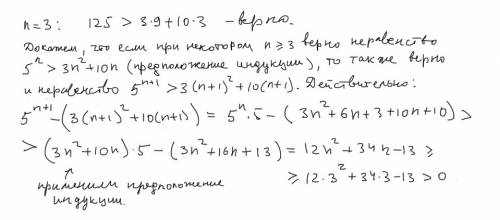 n=3: 125 > 3·9+10·3 – верно.
Докажем, что если при некотором n ≥ 3 верно неравенство
5ⁿ > 3n²+10n (предположение индукции), то также верно
и неравенство 5ⁿ⁺¹ > 3(n+1)²+10(n+1). Действительно:
5ⁿ⁺¹-(3(n+1)²+10(n+1)) = 5ⁿ·5 - (3n²+6n+3+10n+10) >
> (3n²+10n)·5 - (3n²+16n+13) = 12n²+34n-13 ≥
≥ 12·3²+34·3-13 > 0.
применили предположение
индукции.